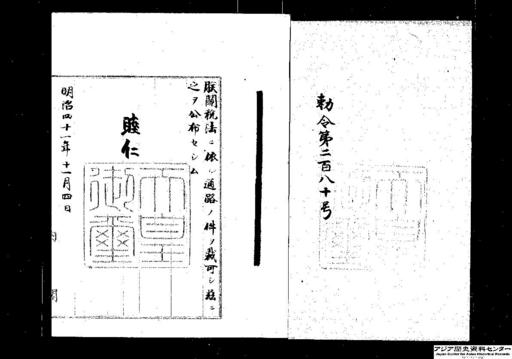 勅令第二百八十号
朕関税法ニ依ル通路ノ件ヲ裁可シ茲ニ
之ヲ公布セシム
睦仁
天皇御璽
明治四十一年十一月四日
内閣
アジア歴史資料センター
Japan Center for Asian Historical Records